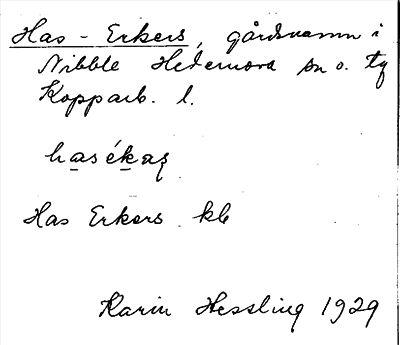 Has - Erkers, gårdsnamn i
Nibble Hedemora sn o. tg
Kopparb. l.
hasékaş
Has Erkers kb
Karin Hessling 1929